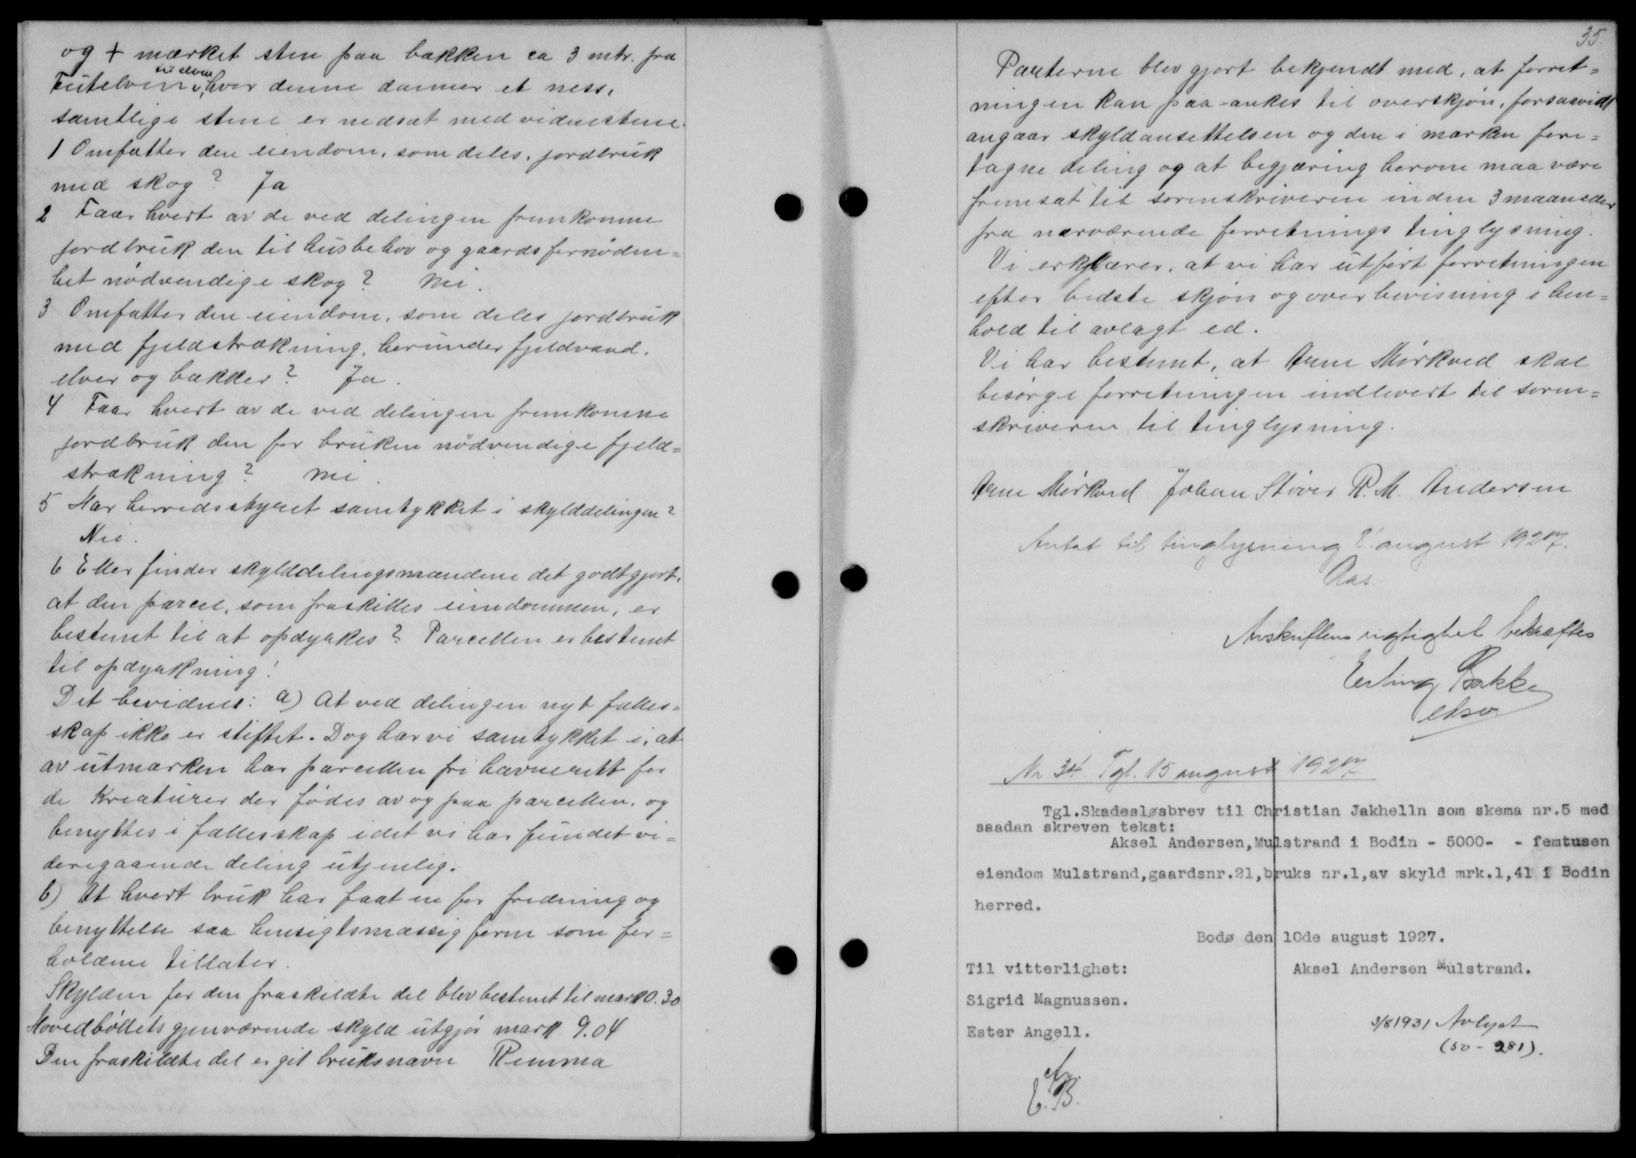 og + mærket sten paa bakken ca 3 mtr. fra
til elven
Futelven, hvor denne danner et ness,
samtlige stene er nedsat med vidnestene.
1 Omfatter den eiendom, som deles, jordbruk
med skog? Ja
2 Faar hvert av de ved delingen fremkomne
jordbruk den til husbehov og gaards fornøden=
het nødvendige skog? Nei.
3 Omfatter den eiendom, som deles jordbruk
med fjeldstrækning, herunder fjeldvand,
elver og bækker? Ja.
4 Faar hvert av de ved delingen fremkomne
jordbruk den for bruken nödvendige fjeld=
strækning? Nei.
5 Har herredsstyret samtykket i skylddelingen?
Nei.
6 Eller finder skylddelingsmændene det godtgjort,
at den parcel, som fraskilles eiendommen, er
bestemt til at opdyrkes? Parcellen er bestemt
til opdyrkning!
Det bevidnes: a) At ved delingen nyt fælles=
skap ikke er stiftet. Dog har vi samtykket i, at
av utmarken har parcellen fri havnerett for
de Kreaturer der fødes av og paa parcellen, og
benyttes i fællesskap idet vi har fundet vi=
deregaaende deling utjenlig.
b) At hvert bruk har faat en for fredning og
benyttelse saa hensigtsmæssig form som for=
holdene tillater.
Skylden for den fraskildte del blev bestemt til mark 0.30
Hovedbölets gjenværende skyld utgjör mark 9.04
Den fraskildte del er git bruksnavn Remma
35
Parterne blev gjort bekjendt med, at forret=
ningen kan paa-ankes til overskjøn, forsaavidt
angaar skyldansettelsen og den i marken fore=
tagne deling og at begjæring herom maa være
fremsat til sorenskriveren inden 3 maaneder
fra nærværende forretnings tinglysning.
Vi erklærer, at vi har utført forretningen
efter bedste skjøn og overbevisning i hen=
hold til avlagt ed.
Vi har bestemt, at Arne Mörkved skal
besörge forretningen indlevert til soren=
skriveren til tinglysning.
Arne Mörkved Johan Støver R. M. Andersen
Antat til tinglysning 2. august 1927.
Aas
Avskriftens rigtighet bekræftes
Erling Bakke
Nr 34 Tgl. 15 august 1927
Tgl.Skadesløsbrev til Christian Jakhelln som skema nr.5 med
saadan skreven tekst:
Aksel Andersen,Mulstrand i Bodin - 5000- - femtusen
eiendom Mulstrand,gaardsnr.21,bruks nr.1,av skyld mrk.1,41 i Bodin
herred.
Bodø den 10de august 1927.
Til vitterlighet: Aksel Andersen Mulstrand.
Sigrid Magnussen.
Ester Angell.
3/8 1931 Avlyst
(50 - 281).
E.B.